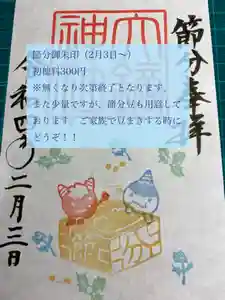 節分奉拝
節分御朱印（2月3日～）
初穂料300円
※無くなり次第終了となります。
また少量ですが、節分豆も用意して
おります。ご家族で豆まきする時に
どうぞ！！
二月三日